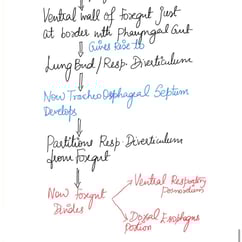 Ventral wall of Foregut just
at border with Pharyngal Gut
Gives Rise to
Lung Bud/Resp. Diverticulum
Now Tracheo Esophageal Septum
Develops
Partitions Resp. Diverticulum
from Foregut
Now Foregut
Divides
Ventral Respiratory
Primordium
Dorsal Esophagus
Portion